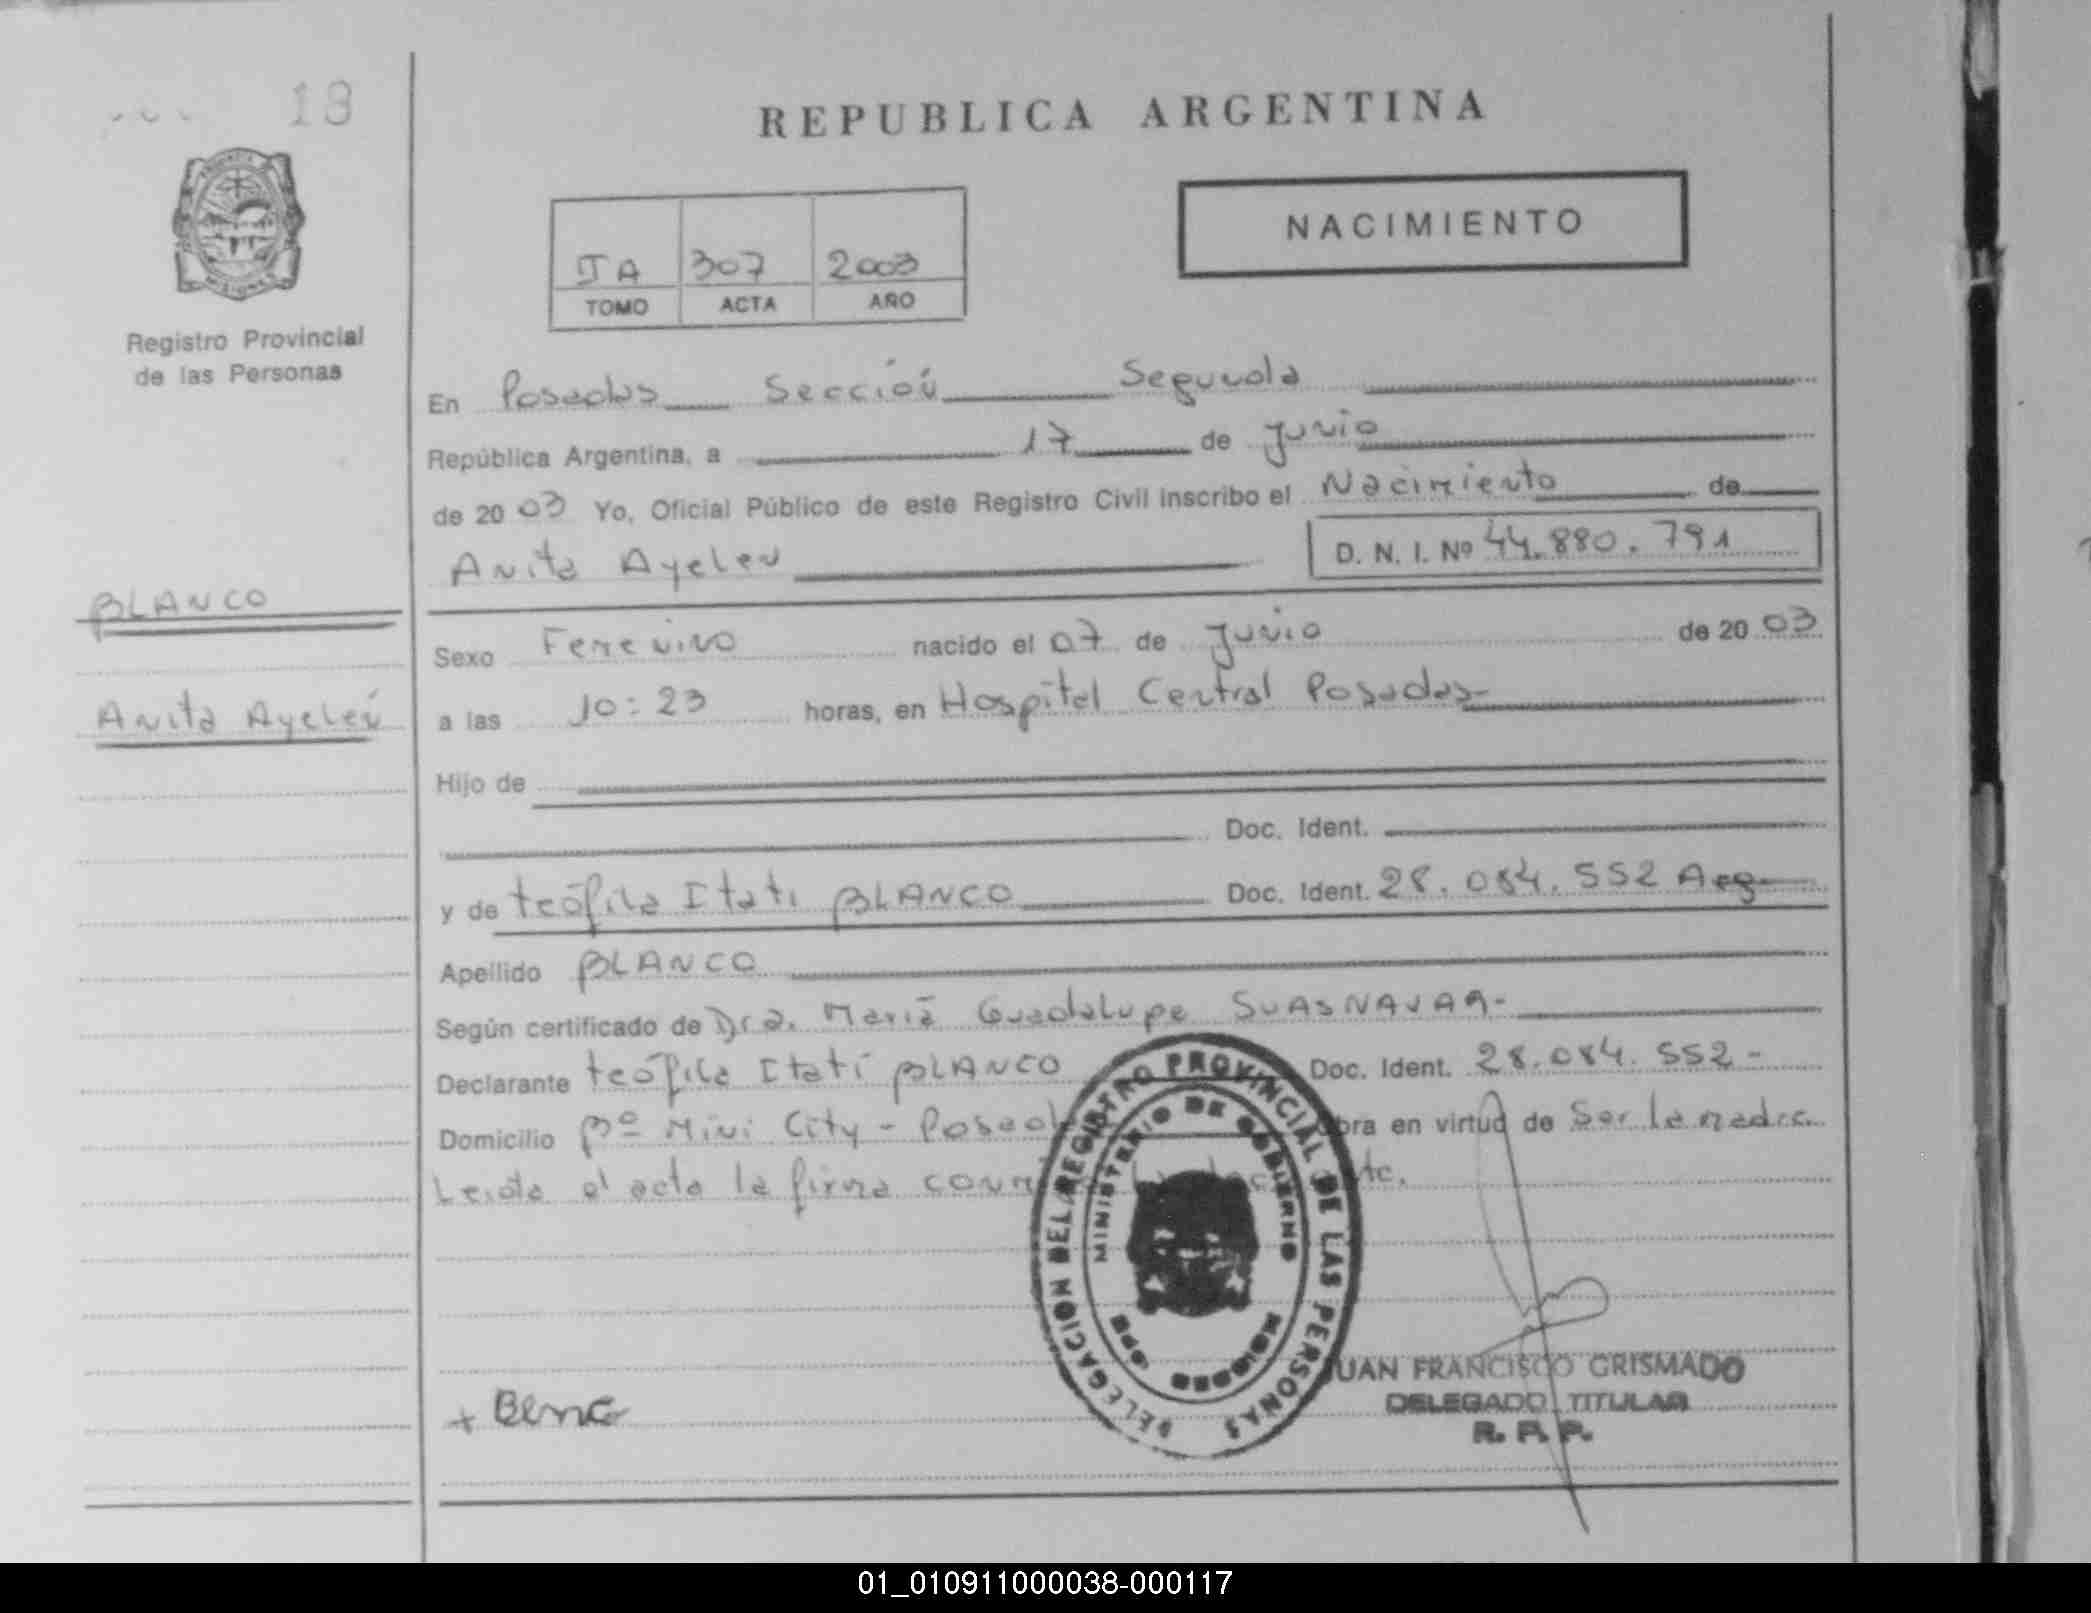 13
REPUBLICA ARGENTINA
NACIMIENTO
JA 307 2003
TOMO ACTA AÑO
Registro Provincial
de las Personas
En Posadas Sección Segunda
República Argentina, a 17 de Junio
de 2003 Yo, Oficial Público de este Registro Civil inscribo el Nacimiento de
Anita Ayelen D. N. I. Nº 44.880.791
BLANCO
Anita Ayelén
Sexo Femenino nacido el 07 de Junio de 2003
a las 10:23 horas, en Hospital Central Posadas-
Hijo de
Doc. Ident.
y de Teófila Itatí BLANCO Doc. Ident. 28.084.552 Arg
Apellido BLANCO
Según certificado de Dra. María Guadalupe SUASNAVAR-
Declarante Teófila Itatí BLANCO Doc. Ident. 28.084.552-
Domicilio Bº Mini City - Obra en virtud de Ser la madre.
Leida el acta la firma
DELEGACION DEL REGISTRO PROVINCIAL DE LAS PERSONAS
MINISTERIO DE GOBIERNO
+ Blanco
JUAN FRANCISCO GRISMADO
DELEGADO TITULAR
R. P. P.
01_010911000038-000117